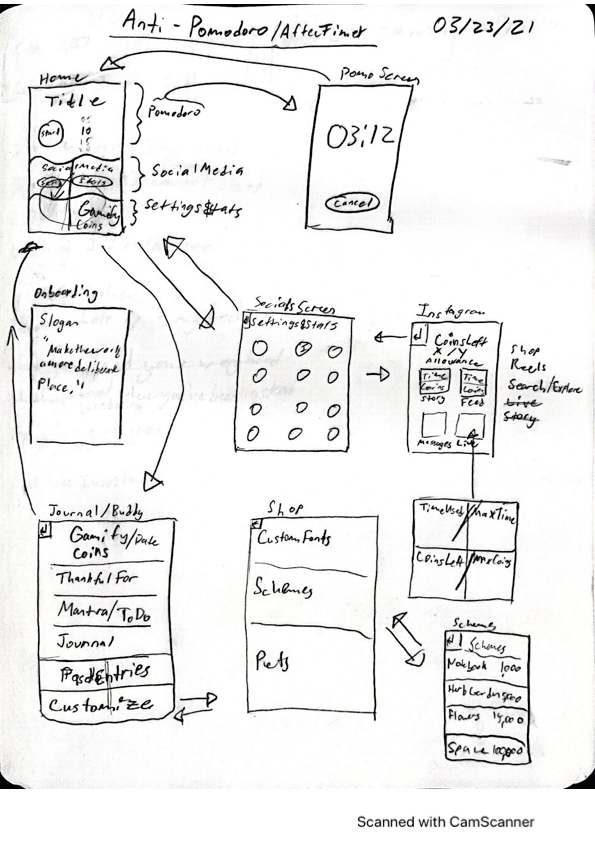 Anti-Pomodoro/AfterTimer 03/23/21
Home
Title
Start
05
10
15
Pomodoro
Social Media
Stats
Social Media
Gamify
Coins
Settings & Stats
Pomo Screen
03:12
Cancel
Onboarding
Slogan
"Make the world
a more deliberate
Place."
Socials Screen
Settings & Stats
Instagram
Coins Left
X/Y
Allowance
Time
Coins
Time
Coins
Story
Feed
Messages
Live
Shop
Reels
Search/Explore
Live
Story
Time Used/Max Time
Coins Left/Max Coins
Journal/Buddy
Gamify/Date
Coins
Thankful For
Mantra/ToDo
Journal
Past Entries
Customize
Shop
Custom Fonts
Schemes
Pets
Schemes
Schemes
Notebook 1,000
Flowers 15,000
Space 100,000
Scanned with CamScanner